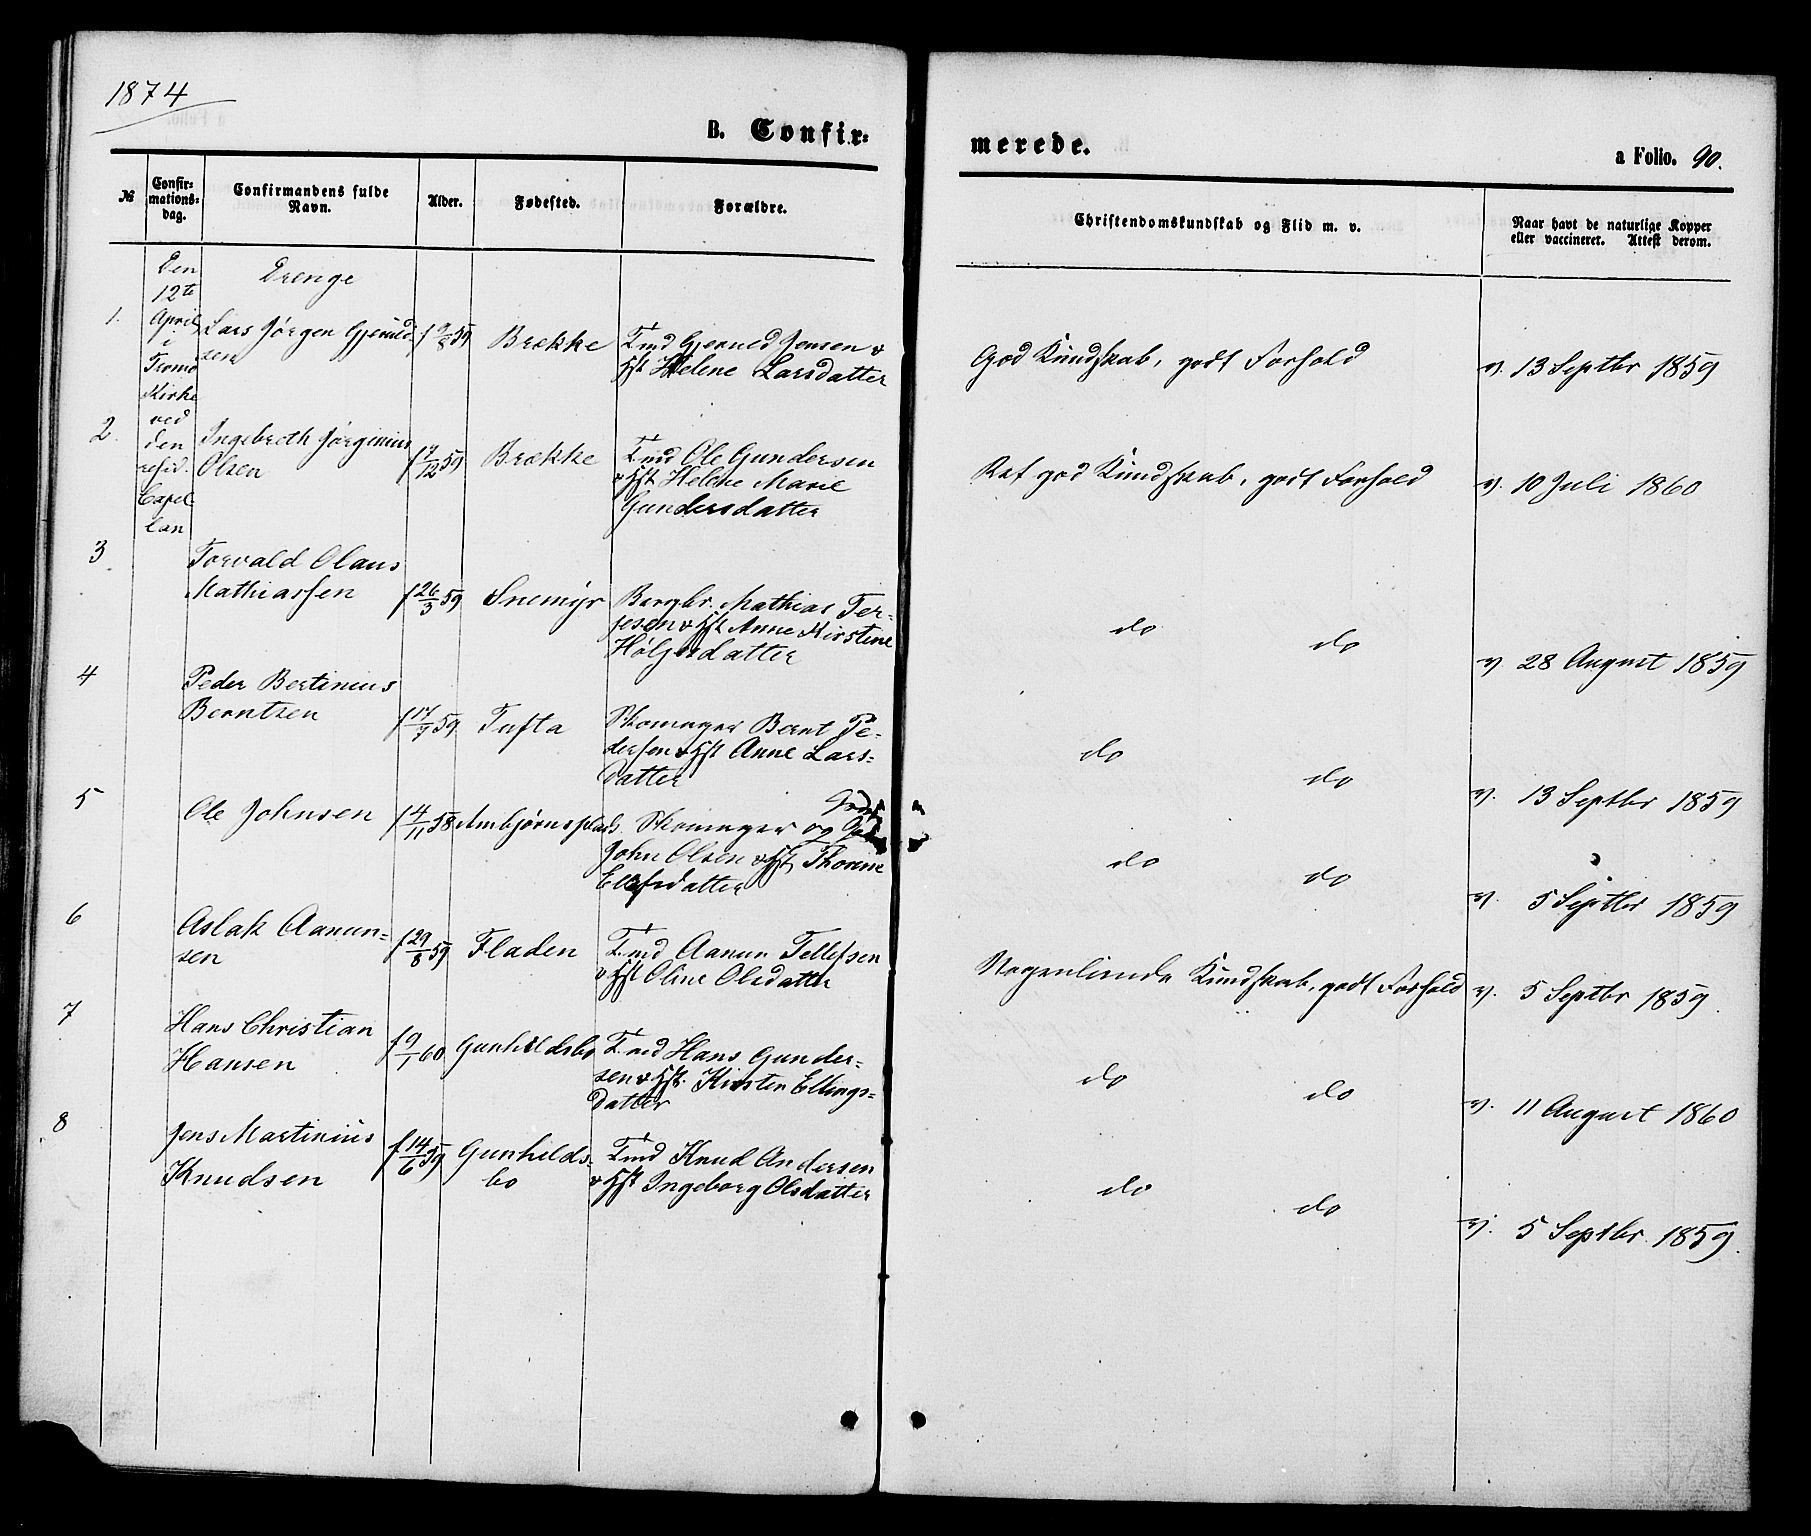 1874
B. Confir=
merede.
a Folio. 90.
№
Confir=
mations=
dag.
Confirmandens fulde
Navn.
Alder.
Fødested.
Forældre.
Christendomskundskab og Flid m. v.
Naar havt de naturlige Kopper
eller vaccineret. Attest derom.
Den
12te
April
i
Tromø
Kirke
ved
den
resid.
Capel
lan
Drenge
1. Lars Jørgen Gjeruld-
sen
f 9/8 59 Brække
Tmd Gjeruld Jensen &
Hst Helene Larsdatter
God Kundskab, godt Forhold
v. 13 Septbr 1859
2. Ingebreth Jørginius
Olsen
f 17/12 59 Brække
Tmd Ole Gundersen
& Hst Helene Marie
Gundersdatter
Ret god Kundskab, godt Forhold
v. 10 Juli 1860
3 Torvald Olaus
Mathiassen
f 26/3 59 Snemyr
Bergbr. Mathias Ter-
jesen & Hst Anne Kirstine
Holjersdatter
do do
v 28 August 1859
4 Peder Bertinius
Berntsen
f 17/7 59 Tufta
Skomager Bernt Pe-
dersen & Hst Anne Lars-
datter
do do
v. 13 Septbr 1859
5 Ole Johnsen
f 4/11 58 Arnbjørnsplads
Skomager og
John Olsen & Hst Thorine
Ellefsdatter
do do
v. 5 Septbr 1859
6 Aslak Aanun=
sen
f 29/8 59 Fladen
Tmd Aanun Tellefsen
& Hst Oline Olsdatter
Nogenlunde Kundskab, godt Forhold
v. 5 Septbr 1859.
7 Hans Christian
Hansen
f 9/1 60 Gunhildsbo
Tmd Hans Gunder=
sen & Hst. Kirsten Ellings=
datter
do do
v. 11 August 1860
8 Jens Martinius
Knudsen
f 14/6 59 Gunhilds=
bo
Tmd Knud Andersen
& Hst Ingeborg Olsdatter
do do
v. 5 Septbr 1859.